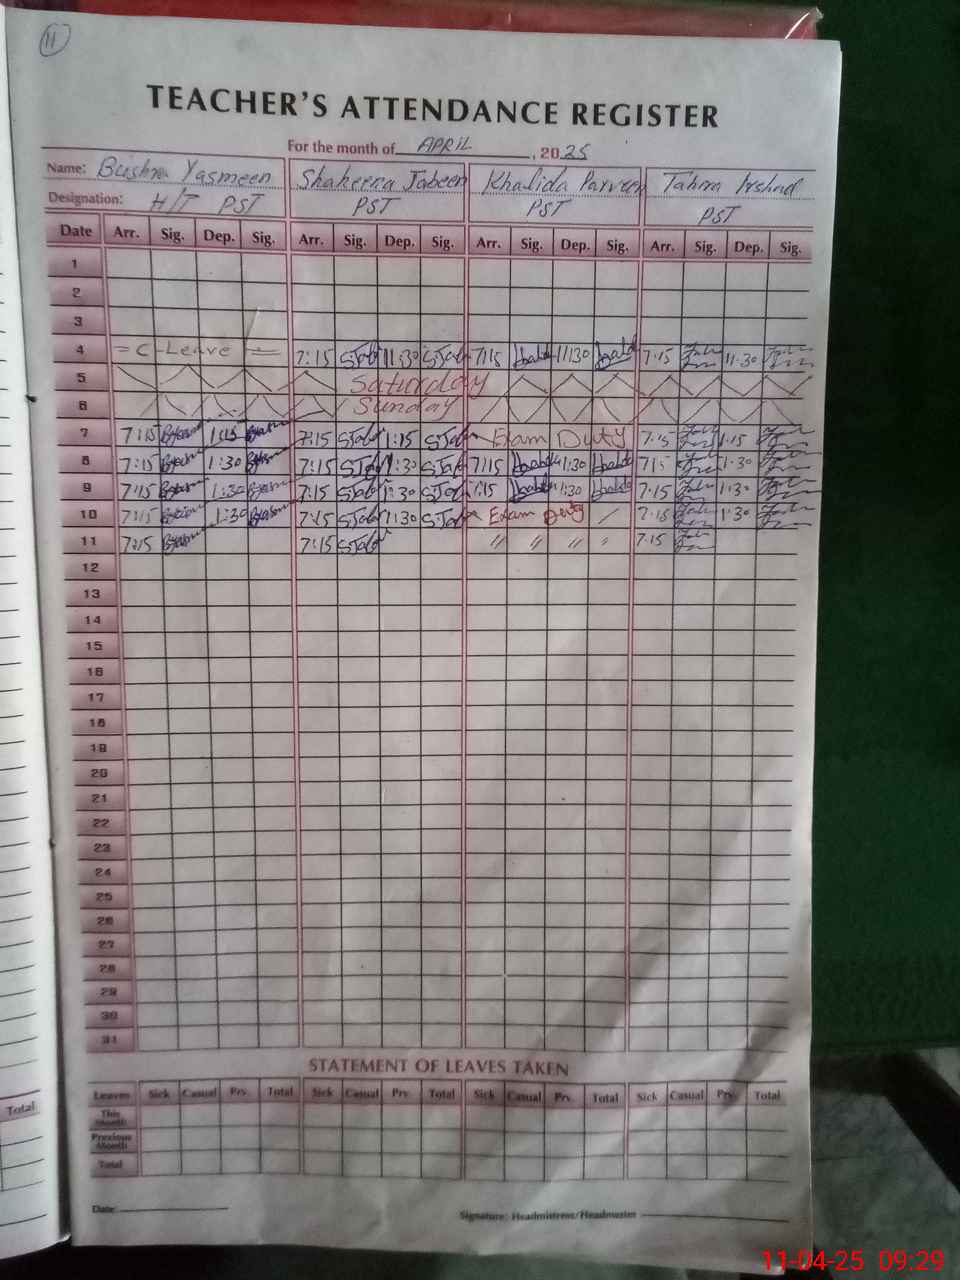 11
TEACHER'S ATTENDANCE REGISTER
For the month of APRIL, 2025
Name: Bushra Yasmeen Shakeena Jabeen Khalida Parveen Tahira Irshad
Designation: H/T PST PST PST PST
Date Arr. Sig. Dep. Sig. Arr. Sig. Dep. Sig. Arr. Sig. Dep. Sig. Arr. Sig. Dep. Sig.
1
2
3
4 = C-Leave = 7:15 SJab 11:30 SJab 7:15 11:30 7:15 11:30
5 Saturday
6 Sunday
7 7:15 1:15 7:15 SJab 1:15 SJab Exam Duty 7:15 1:15
8 7:15 1:30 7:15 SJab 1:30 SJab 7:15 1:30 7:15 1:30
9 7:15 1:30 7:15 SJab 1:30 SJab 7:15 1:30 7:15 1:30
10 7:15 1:30 7:15 SJab 1:30 SJab Exam Duty 7:15 1:30
11 7:15 7:15 SJab " " " " 7:15
12
13
14
15
16
17
18
19
20
21
22
23
24
25
26
27
28
29
30
31
STATEMENT OF LEAVES TAKEN
Leaves Sick Casual Prv. Total Sick Casual Prv. Total Sick Casual Prv. Total Sick Casual Prv. Total
This Month
Previous Month
Total
Total
Date: Signature: Headmistress/Headmaster
11-04-25 09:29